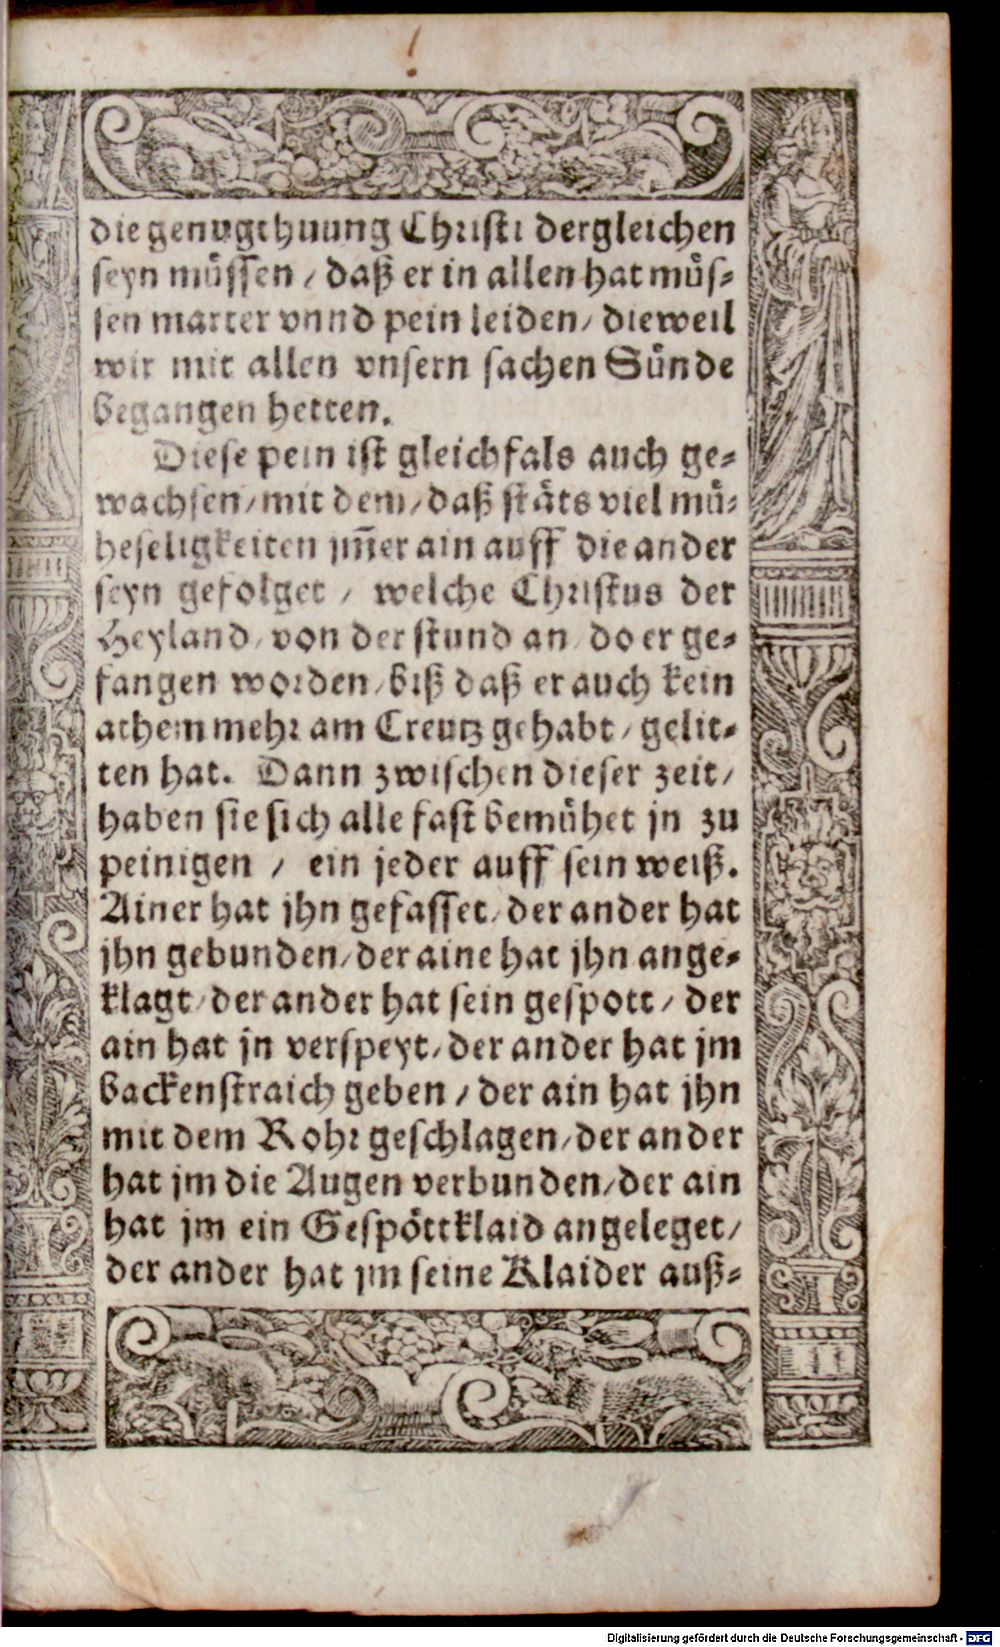 die genugthuung Christi dergleichen
seyn müssen / daß er in allen hat müs⸗
sen marter vnnd pein leiden / dieweil
wir mit allen vnsern sachen Sünde
begangen hetten.
Diese pein ist gleichfals auch ge⸗
wachsen / mit dem / daß stäts viel mü⸗
heseligkeiten jm̃er ain auff die ander
seyn gefolget / welche Christus der
Heyland / von der stund an / do er ge⸗
fangen worden / biß daß er auch kein
athem mehr am Creutz gehabt / gelit⸗
ten hat. Dann zwischen dieser zeit /
haben sie sich alle fast bemühet jn zu
peinigen / ein jeder auff sein weiß.
Ainer hat jhn gefasset / der ander hat
jhn gebunden / der aine hat jhn ange⸗
klagt / der ander hat sein gespott / der
ain hat jn verspeyt / der ander hat jm
backenstraich geben / der ain hat jhn
mit dem Rohr geschlagen / der ander
hat jm die Augen verbunden / der ain
hat jm ein Gespöttklaid angeleget /
der ander hat jm seine Klaider auß⸗
Digitalisierung gefördert durch die Deutsche Forschungsgemeinschaft - DFG